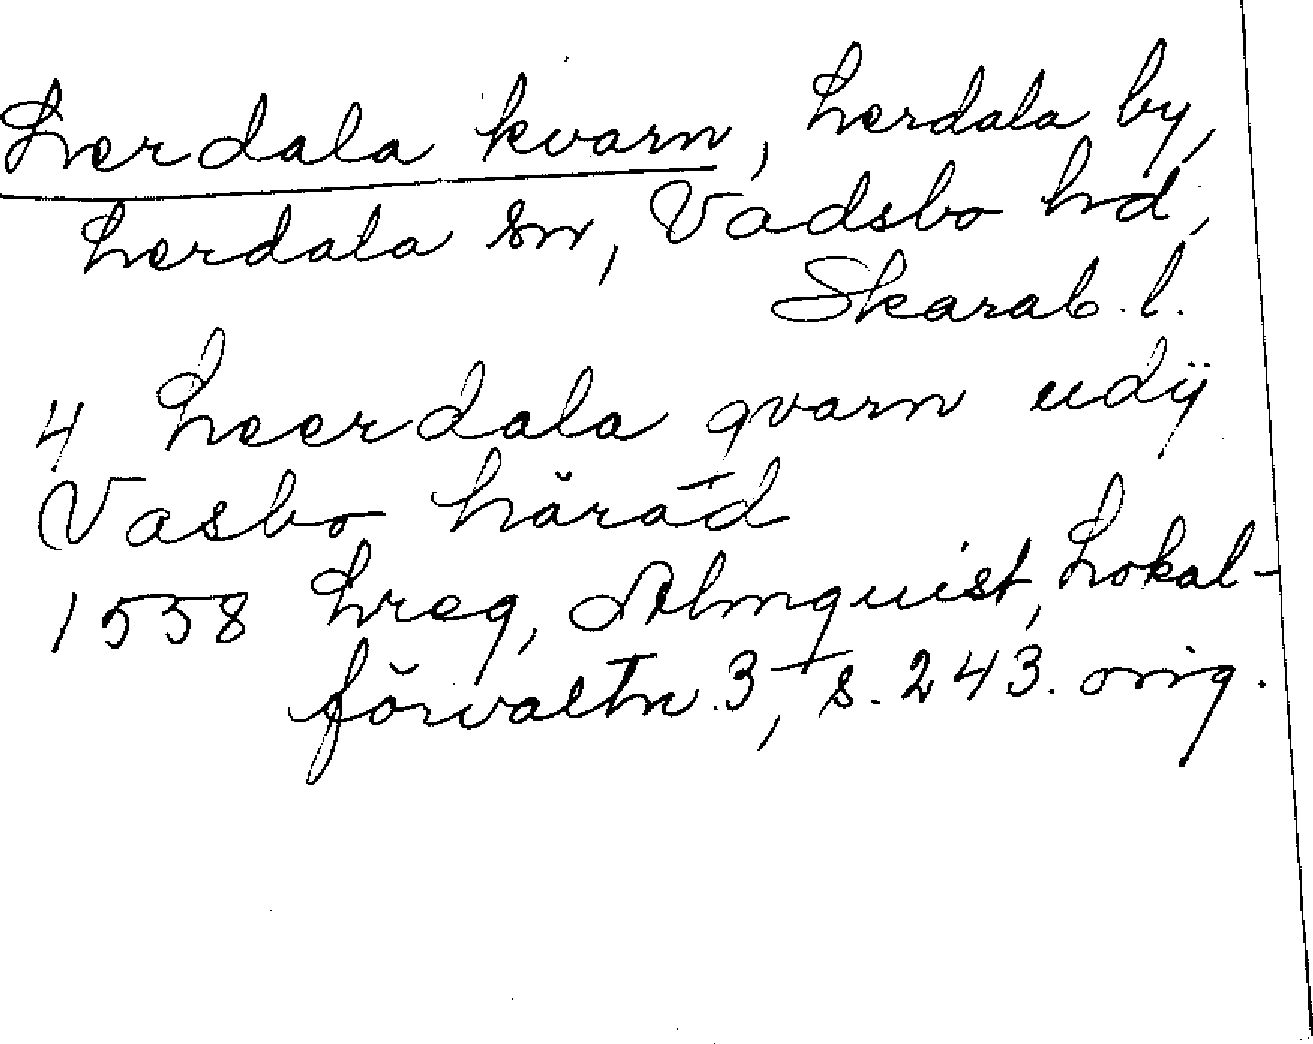 Lerdala kvarn, Lerdala by,
Lerdala sn, Vadsbo hd,
Skarab. l.
4 Leerdala qvarn udÿ
Vasbo häräd
1558 Lreg, Almquist, Lokal-
förvaltn. 3, s. 243. orig.